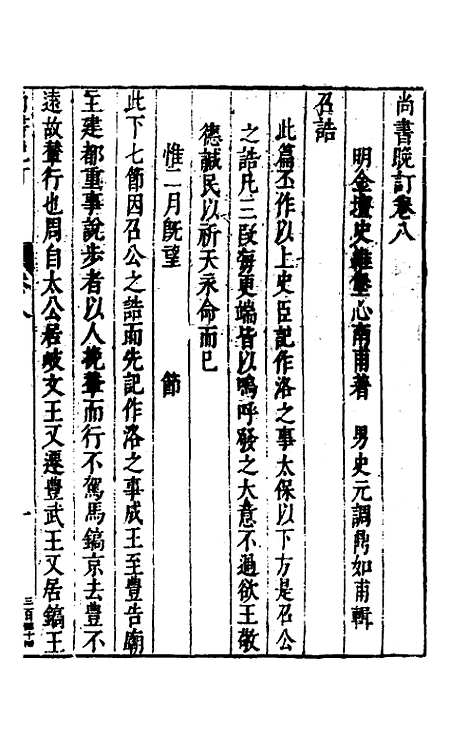 尚書晚訂卷八
明金壇史維堡心南甫著　男史元調鼎如甫輯
召誥
此篇丕作以上史臣記作洛之事太保以下方是召公
之誥凡三段每更端皆以嗚呼發之大意不過欲王敬
德諴民以祈天永命而已
惟二月既望　節
此下七節因召公之誥而先記作洛之事成王至豐告廟
王建都重事說步者以人輓輦而行不駕馬鎬京去豐不
遠故輦行也周自太公居岐文王又遷豐武王又居鎬王
卷八
一